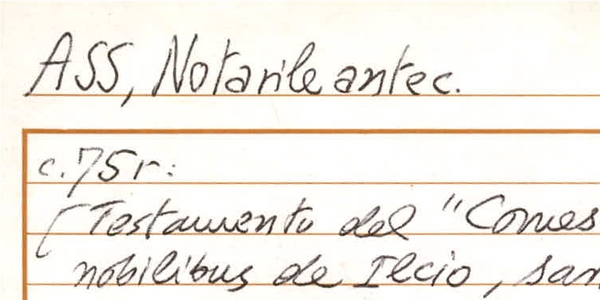 ASS, Notarile antec.
c. 75r:
[Testamento del "Comes
nobilibus de Ilcio, san